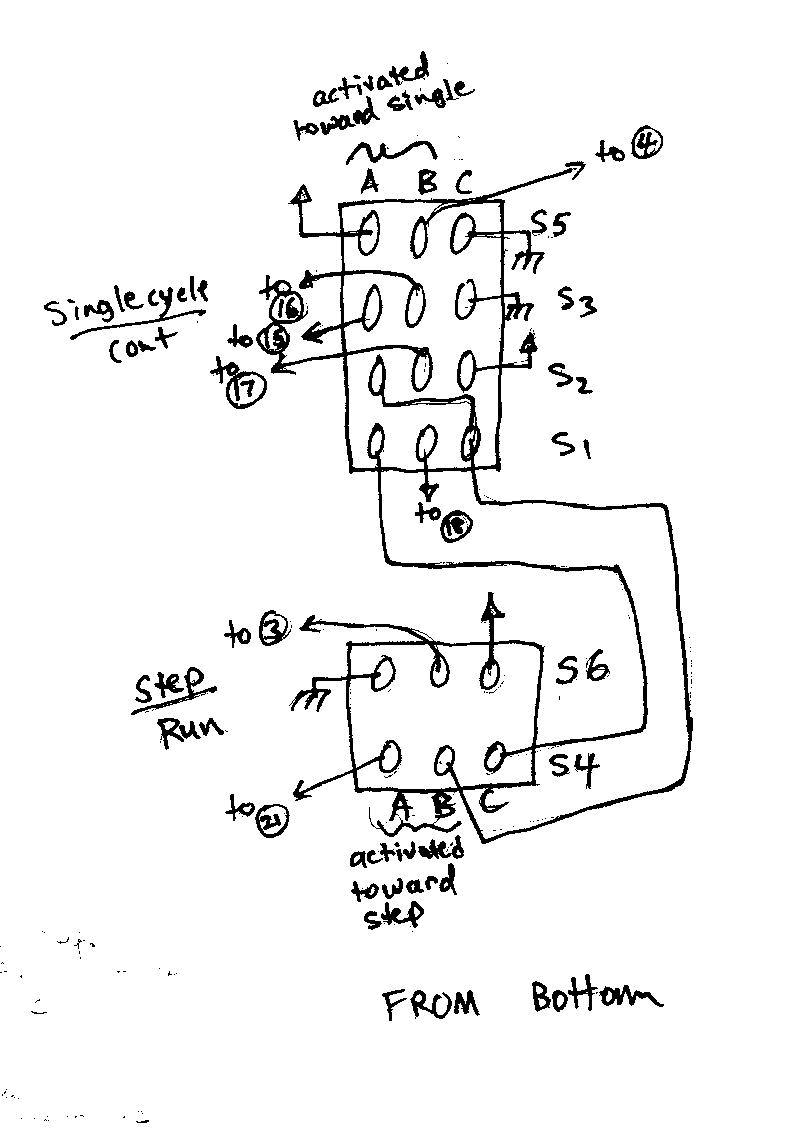 activated
toward single
to 4
A B C
S5
Single cycle
cont
to
16
S3
to 15
to
17
S2
S1
to
18
to 3
Step
Run
S6
S4
to
21
A B C
activated
toward
step
FROM Bottom